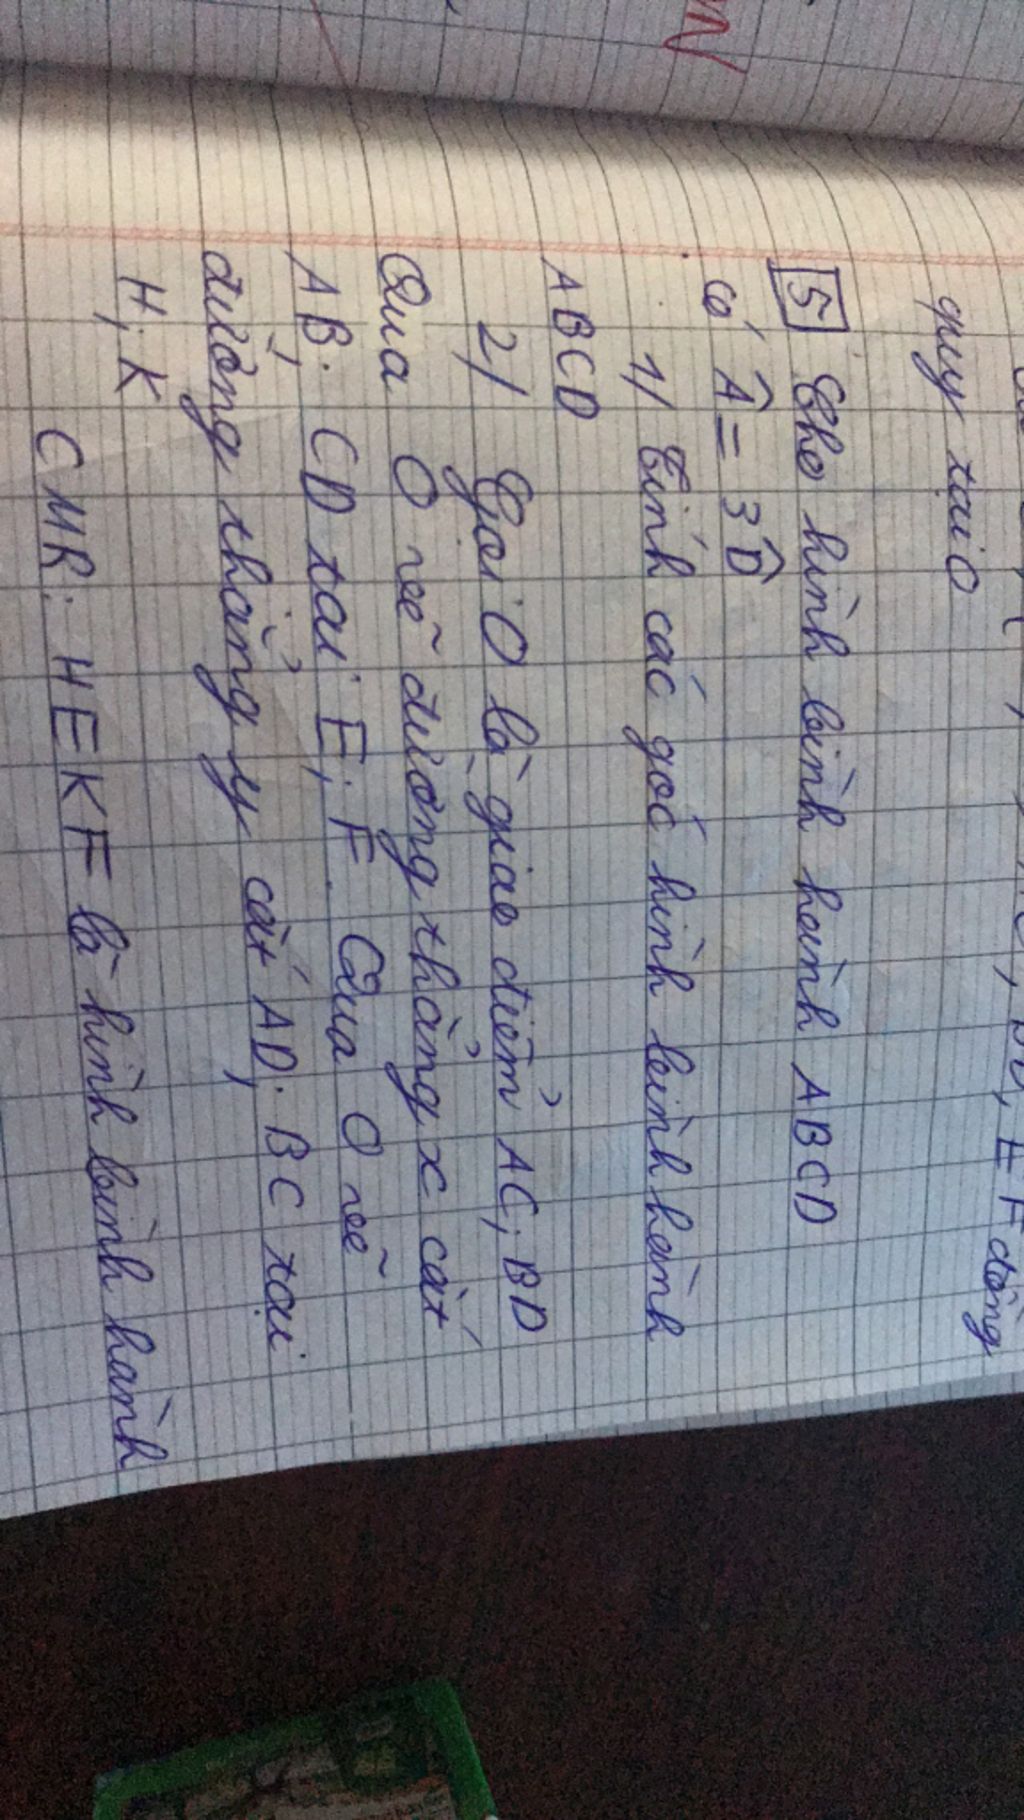 BD, EF đồng
quy tại O
5 Cho hình bình hành ABCD
có Â = 3D̂
1/ Tính các góc hình bình hành
ABCD
2/ Gọi O là giao điểm AC; BD
Qua O vẽ đường thẳng x cắt
AB; CD tại E; F. Qua O vẽ
đường thẳng y cắt AD; BC tại
H; K
CMR: HEKF là hình bình hành